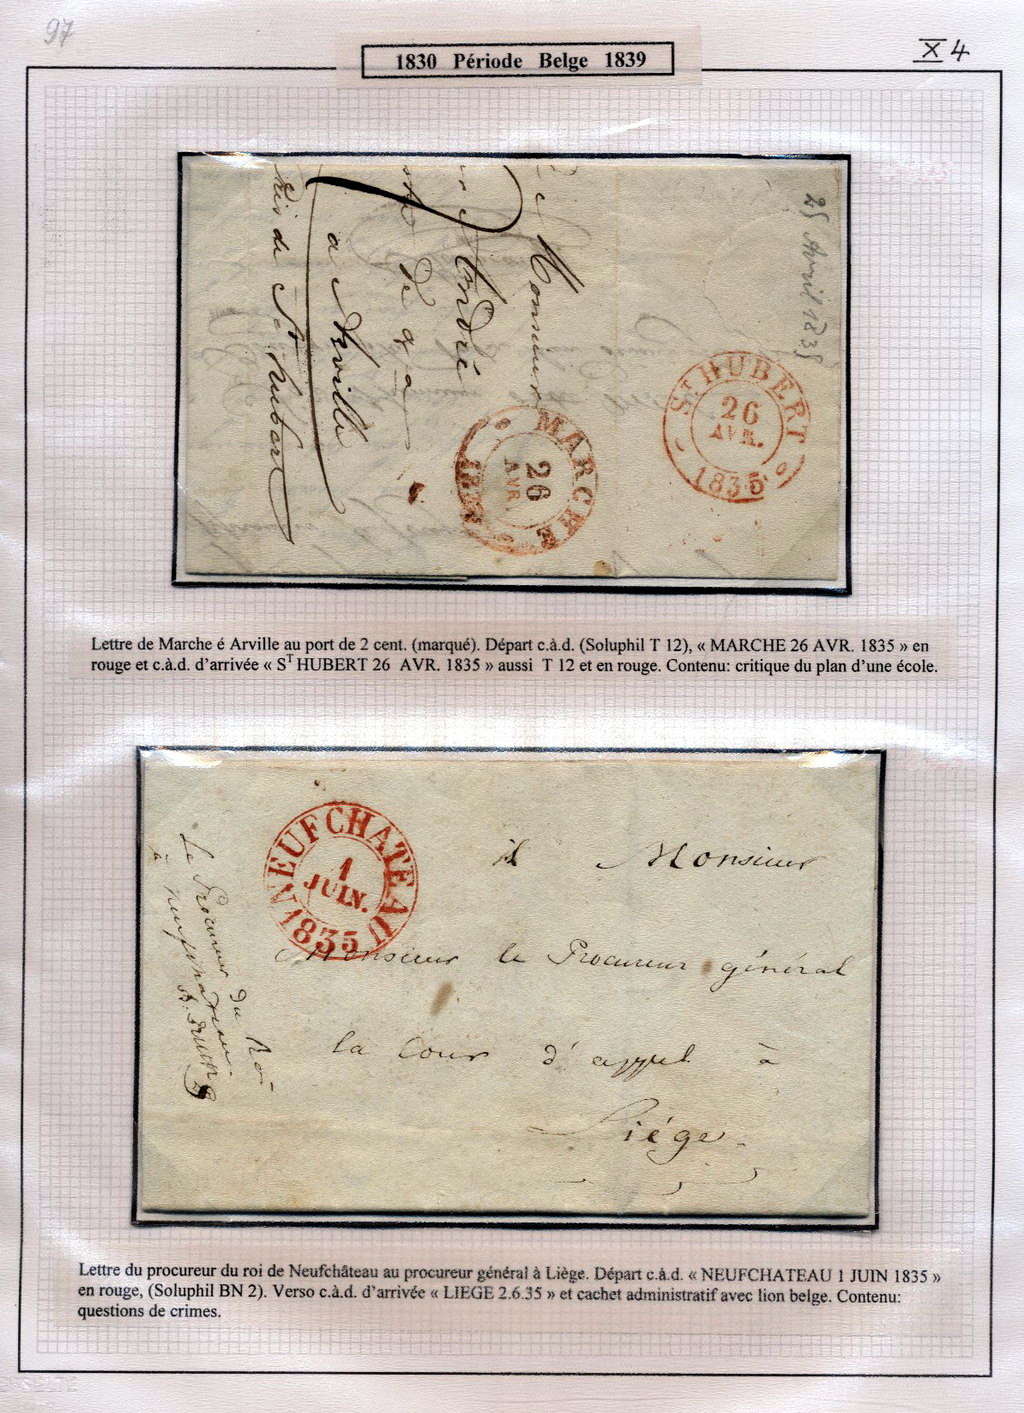 97
X 4
1830 Période Belge 1839
25 Avril 1835
a Monsieur
André
De g a
a Arville
Près de St hubert
MARCHE
26
AVR.
1835
ST HUBERT
26
AVR.
1835
Lettre de Marche é Arville au port de 2 cent. (marqué). Départ c.à.d. (Soluphil T 12), « MARCHE 26 AVR. 1835 » en
rouge et c.à.d. d’arrivée « ST HUBERT 26 AVR. 1835 » aussi T 12 et en rouge. Contenu: critique du plan d’une école.
NEUFCHATEAU
1
JUIN.
1835
Le Procureur du Roi
à neufchateau
A Monsieur
Monsieur le Procureur général
la Cour d'appel à
Liége.
Lettre du procureur du roi de Neufchâteau au procureur général à Liège. Départ c.à.d. « NEUFCHATEAU 1 JUIN 1835 »
en rouge, (Soluphil BN 2). Verso c.à.d. d’arrivée « LIEGE 2.6.35 » et cachet administratif avec lion belge. Contenu:
questions de crimes.